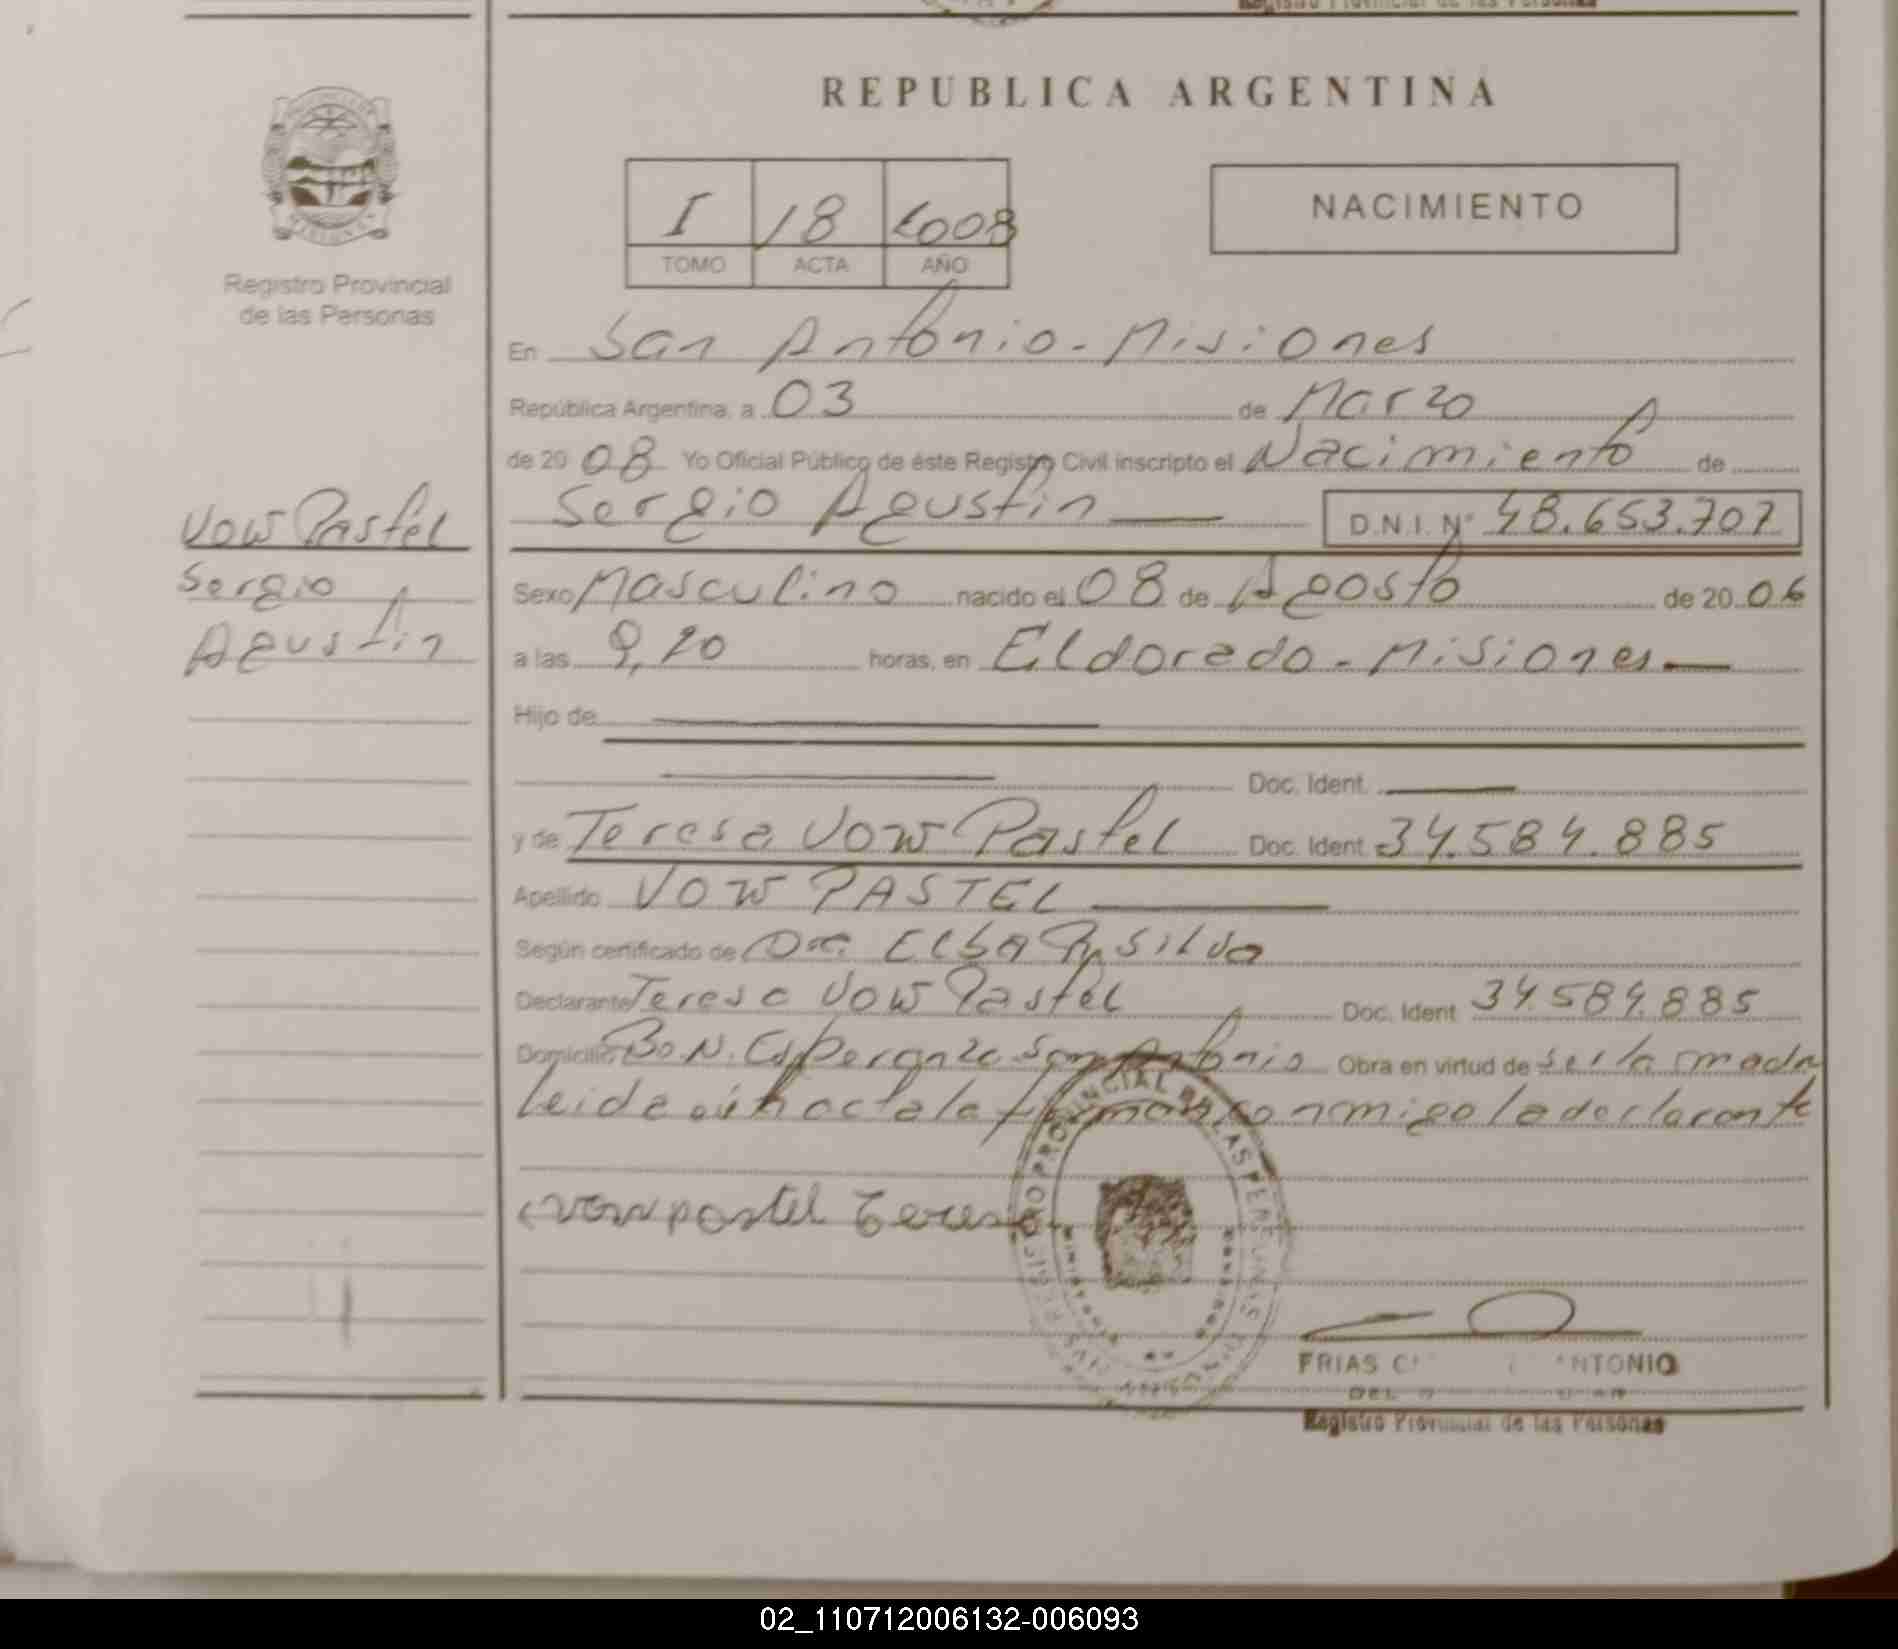 Registro Provincial de las Personas
REPUBLICA ARGENTINA
I 18 2008
TOMO ACTA AÑO
NACIMIENTO
Registro Provincial
de las Personas
En San Antonio - Misiones
República Argentina, a 03 de Marzo
de 20 08 Yo Oficial Público de éste Registro Civil inscripto el Nacimiento de
Sergio Agustin D.N.I. Nº 48.653.707
Vow Pastel
Sergio
Agustin
Sexo Masculino nacido el 08 de Agosto de 20 06
a las 9,20 horas, en Eldorado - Misiones
Hijo de
Doc. Ident.
y de Teresa Vow Pastel Doc. Ident. 34.584.885
Apellido VOW PASTEL
Según certificado de Dra. Elba Silva
Declarante Teresa Vow Pastel Doc. Ident 34.584.885
Domicilio Bo N. Esperanza San Antonio Obra en virtud de ser la madre
Leida acta la firman conmigo la declarante
vow pastel Teresa
REGISTRO PROVINCIAL DE LAS PERSONAS
FRIAS ANTONIO
Registro Provincial de las Personas
02_110712006132-006093